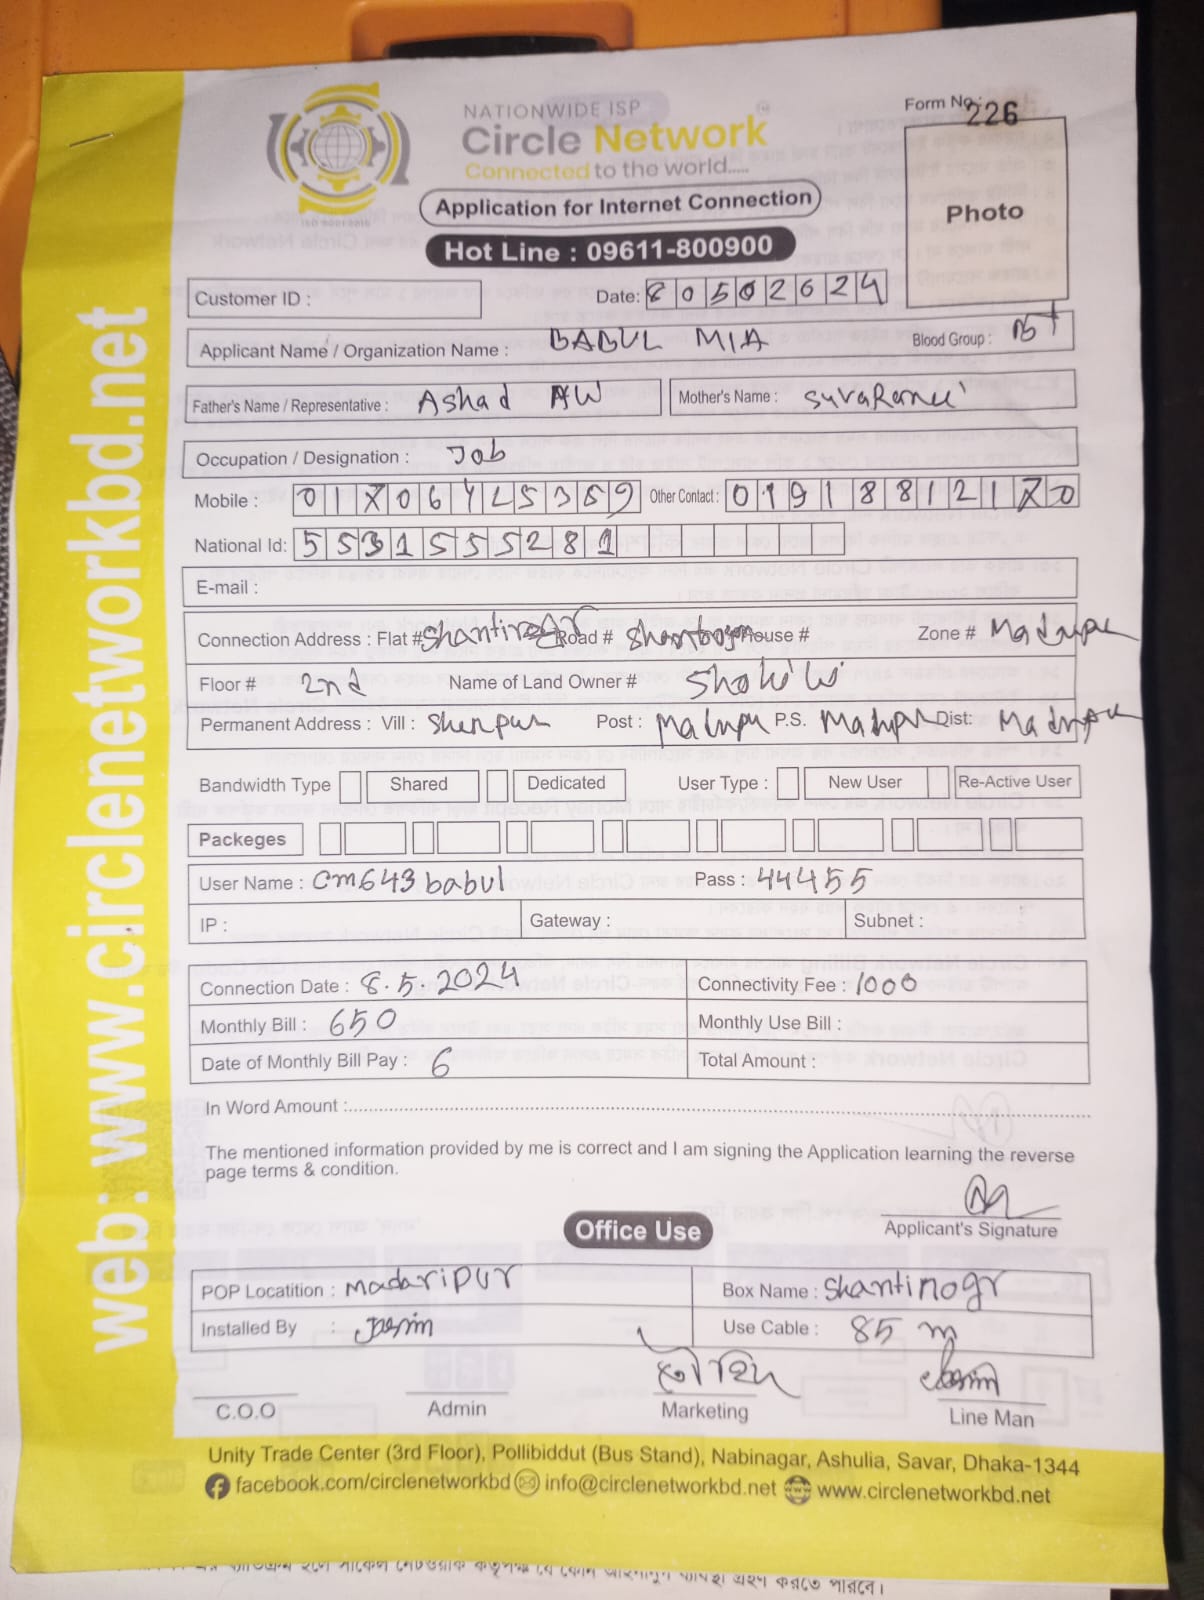 NATIONWIDE ISP
Circle Network
Connected to the world.....
ISO 9001:2015
Form No.: 226
Photo
Application for Internet Connection
Hot Line : 09611-800900
Customer ID :
Date: 8 05 02024
Applicant Name / Organization Name : BABUL MIA Blood Group : B+
Father's Name / Representative : Ashad Mother's Name :
Occupation / Designation : Job
Mobile : Other Contact : 01918812170
National Id: 5531555281
E-mail :
Connection Address : Flat # Shantinogr Road # House # Zone #
Floor # 2nd Name of Land Owner #
Permanent Address : Vill : Sherpur Post : P.S. Dist:
Bandwidth Type Shared Dedicated User Type : New User Re-Active User
Packeges
User Name : cm643babul Pass : 44455
IP : Gateway : Subnet :
Connection Date : 8.5.2024 Connectivity Fee : 1000
Monthly Bill : 650 Monthly Use Bill :
Date of Monthly Bill Pay : 6 Total Amount :
In Word Amount :
The mentioned information provided by me is correct and I am signing the Application learning the reverse
page terms & condition.
Applicant's Signature
Office Use
POP Locatition : madaripur Box Name : Shantinogr
Installed By : Jasim Use Cable : 85 m
C.O.O Admin Marketing Line Man
Unity Trade Center (3rd Floor), Pollibiddut (Bus Stand), Nabinagar, Ashulia, Savar, Dhaka-1344
facebook.com/circlenetworkbd info@circlenetworkbd.net www.circlenetworkbd.net
web: www.circlenetworkbd.net